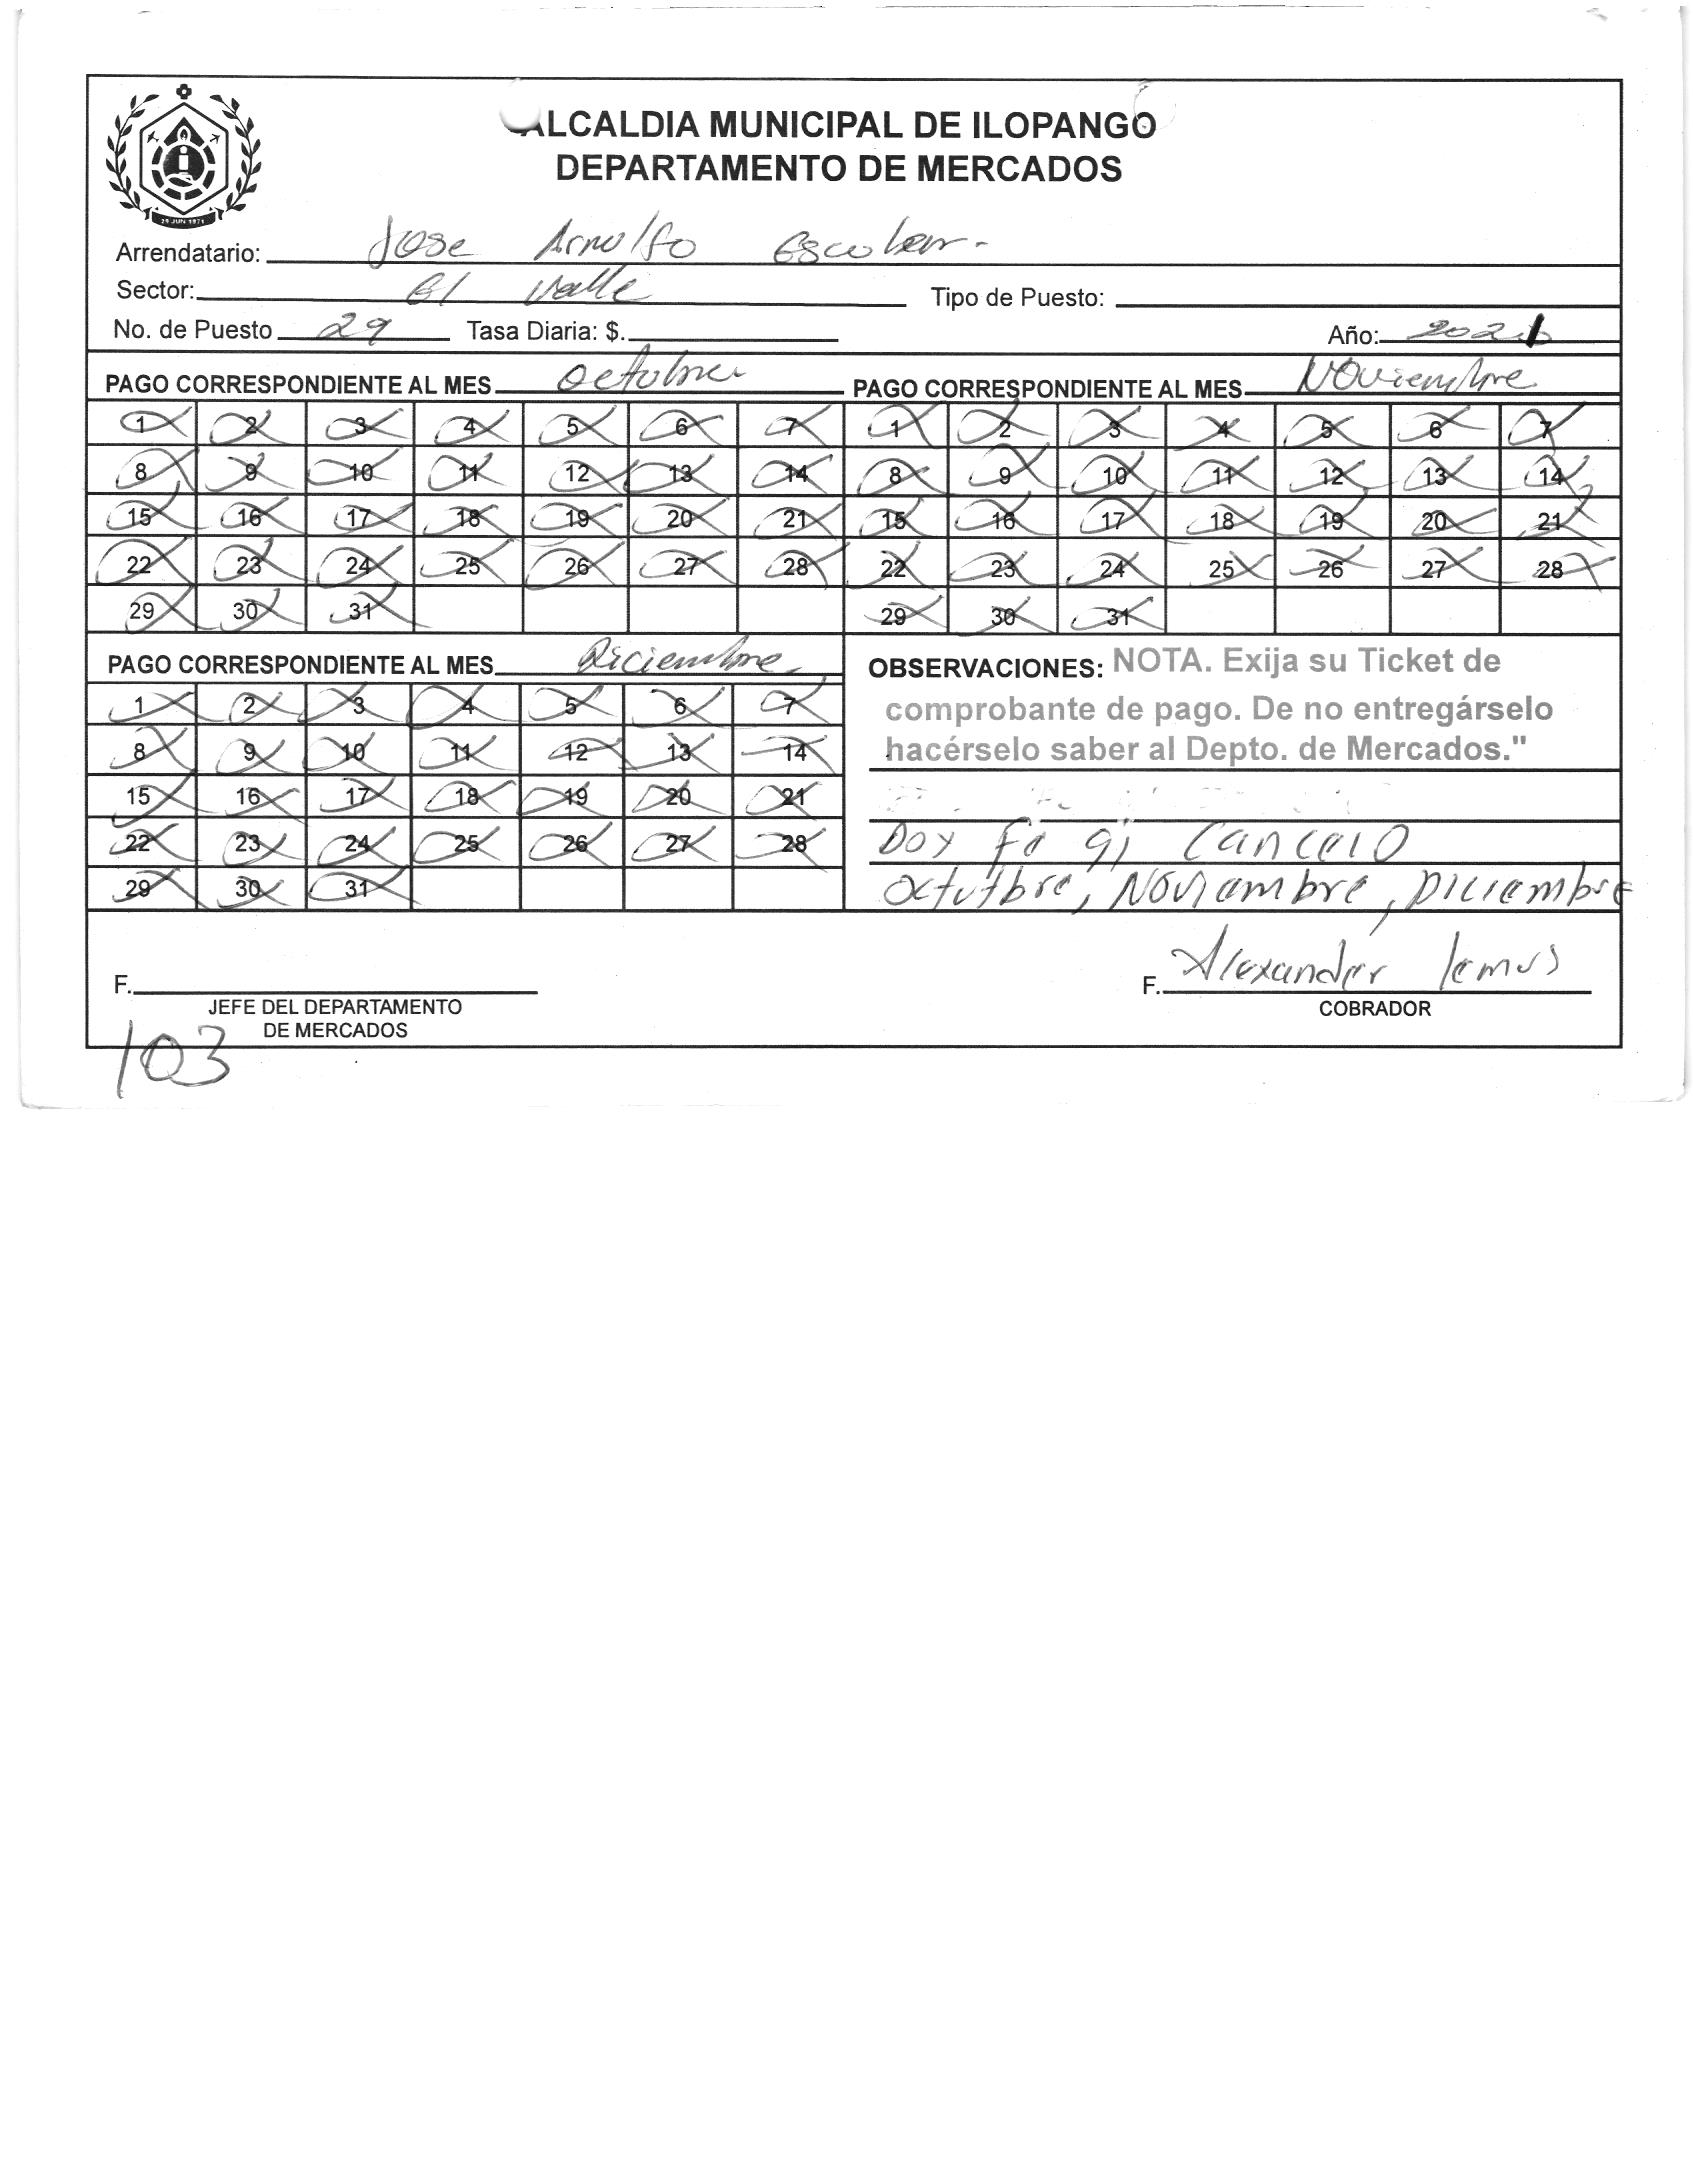 ALCALDIA MUNICIPAL DE ILOPANGO
DEPARTAMENTO DE MERCADOS
29 JUN 1971
Arrendatario: Jose Arnulfo Escobar.
Sector: El Valle Tipo de Puesto:
No. de Puesto 29 Tasa Diaria: $. Año: 2021
PAGO CORRESPONDIENTE AL MES Octubre PAGO CORRESPONDIENTE AL MES Noviembre
1 2 3 4 5 6 7 1 2 3 4 5 6 7
8 9 10 11 12 13 14 8 9 10 11 12 13 14
15 16 17 18 19 20 21 15 16 17 18 19 20 21
22 23 24 25 26 27 28 22 23 24 25 26 27 28
29 30 31 29 30 31
PAGO CORRESPONDIENTE AL MES Diciembre
1 2 3 4 5 6 7
8 9 10 11 12 13 14
15 16 17 18 19 20 21
22 23 24 25 26 27 28
29 30 31
OBSERVACIONES: NOTA. Exija su Ticket de
comprobante de pago. De no entregárselo
hacérselo saber al Depto. de Mercados."
Doy fe qi cancelo
Octutbre, Noviembre, Diciembre
F. F. Alexander lemus
JEFE DEL DEPARTAMENTO COBRADOR
DE MERCADOS
103